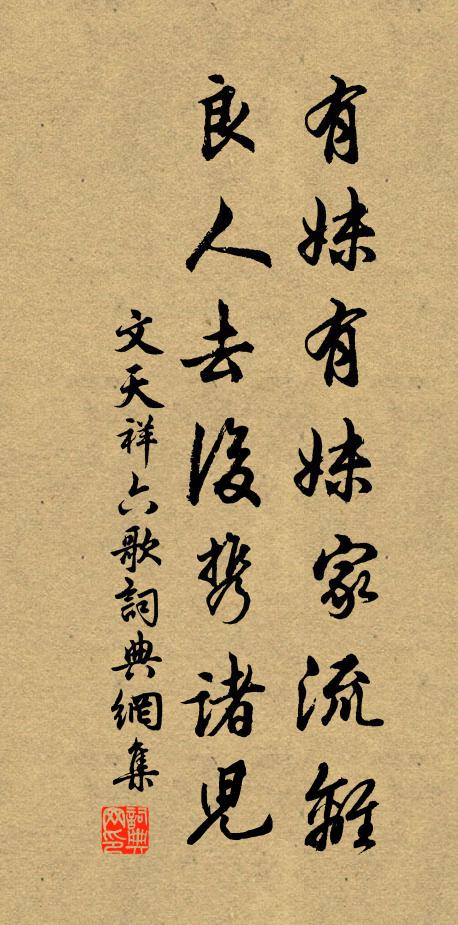 有妹有妹家流離
良人去後携諸兒
文天祥六歌詞典網集
詞典网印